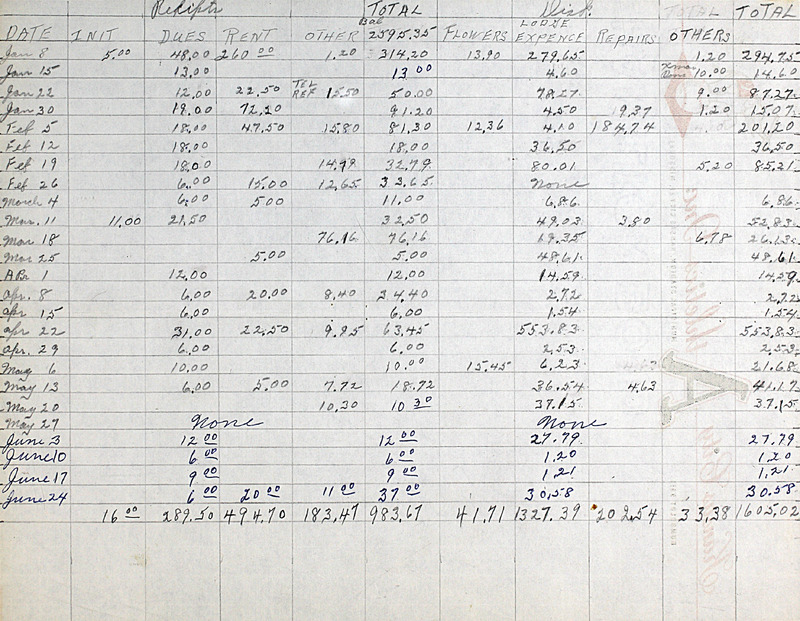 Receipts TOTAL Disb. TOTAL TOTAL
DATE INIT DUES RENT OTHER Bal 2595.35 FLOWERS LODGE EXPENCE REPAIRS OTHERS
Jan 8 5.00 48.00 260 00 1.20 314.20 13.90 279.65 1.20 294.75
Jan 15 13.00 13 00 4.60 Xmas 10.00 14.60
Jan 22 12.00 22.50 TEL REF 15.50 50.00 78.27 9.00 87.27
Jan 30 19.00 72.20 91.20 4.50 19.37 1.20 15.07
Feb 5 18.00 47.50 15.80 81.30 12.36 4.10 184.74 201.20
Feb 12 18.00 18.00 36.50 36.50
Feb 19 18.00 14.79 32.79 80.01 5.20 85.21
Feb 26 6.00 15.00 12.65 33.65 None
March 4 6.00 5.00 11.00 6.86 6.86
Mar. 11 11.00 21.50 32.50 49.03 3.80 52.83
Mar 18 76.16 76.16 19.35 6.78 26.13
Mar 25 5.00 5.00 48.61 48.61
APR 1 12.00 12.00 14.59 14.59
Apr. 8 6.00 20.00 8.40 34.40 2.72 2.72
Apr 15 6.00 6.00 1.54 1.54
Apr 22 31.00 22.50 9.95 63.45 553.83 553.83
Apr. 29 6.00 6.00 2.53 2.53
May 6 10.00 10.00 15.45 6.23 21.68
May 13 6.00 5.00 7.72 18.72 36.54 4.63 41.17
May 20 10.30 10 30 37.15 37.15
May 27 None None
June 3 12 00 12 00 27.79 27.79
June 10 6 00 6 00 1.20 1.20
June 17 9 00 9 00 1.21 1.21
June 24 6 00 20 00 11 00 37 00 30.58 30.58
16 00 289.50 494.70 183.47 983.67 41.71 1327.39 202.54 33.38 1605.02